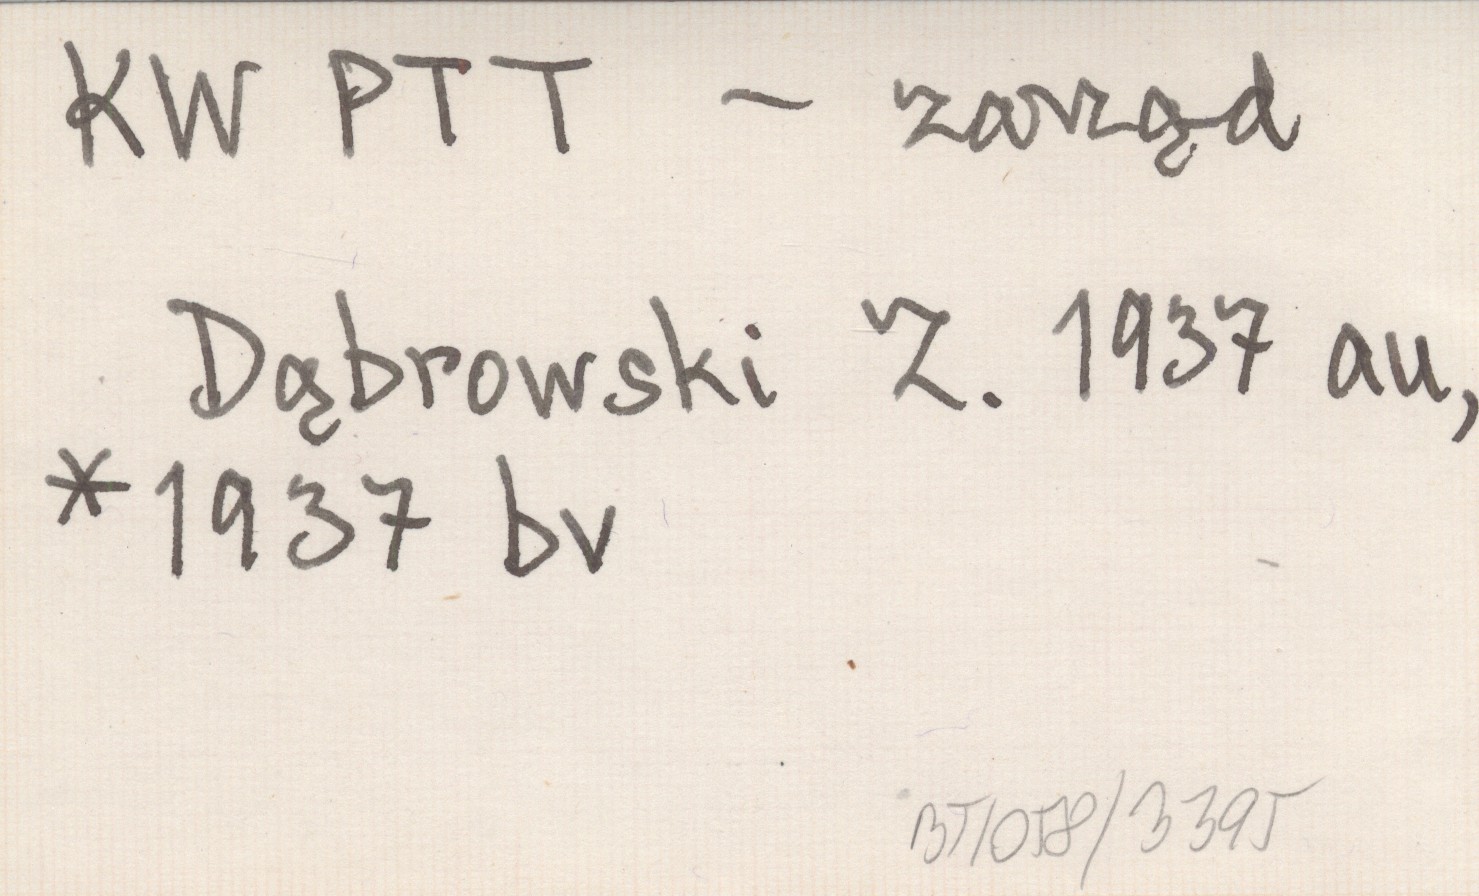 KW PTT - zarząd
Dąbrowski Z. 1937 au,
* 1937 bv
BT/058/3395